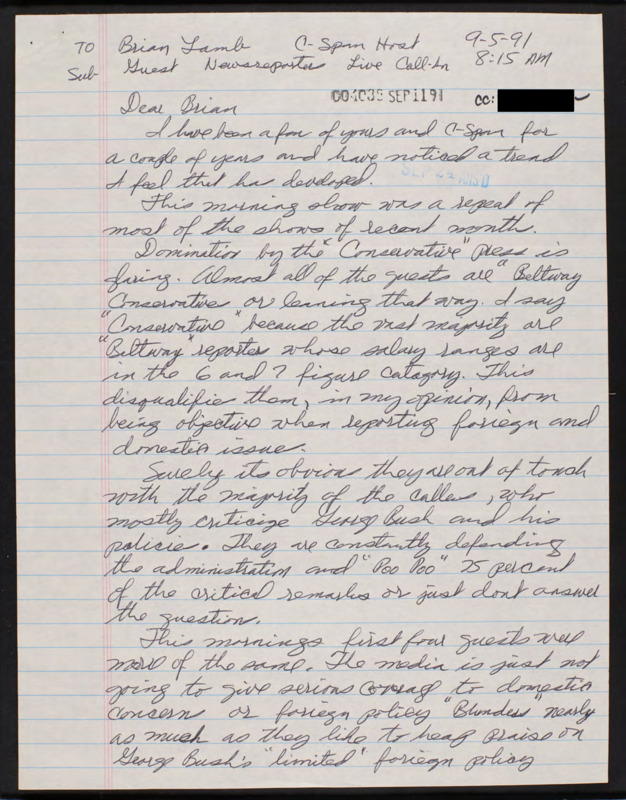 TO Brian Lamb C-Span Host 9-5-91
Sub- Guest Newsreporters Live Call-In 8:15 AM
004035 SEP 11 91 cc:
Dear Brian
I have been a fan of yours and C-Span for
a couple of years and have noticed a trend
I feel that has developed.
SEP 24
This morning show was a repeat of
most of the shows of recent month.
Domination by the "Conservative" press is
glaring. Almost all of the guests are "Beltway
Conservative or leaning that way. I say
"Conservative" because the vast majority are
"Beltway" reporters whose salary ranges are
in the 6 and 7 figure category. This
disqualifies them, in my opinion, from
being objective when reporting foriegn and
domestic issues.
Surely its obvious they are out of touch
with the majority of the callers, who
mostly criticize George Bush and his
policies. They are constantly defending
the administration and "Poo Poo" 75 percent
of the critical remarks or just dont answer
the question.
This mornings first four guests were
more of the same. The media is just not
going to give serious coverage to domestic
concerns or foriegn policy "Blunders" nearly
as much as they like to heap praise on
George Bush's "limited" foriegn policy